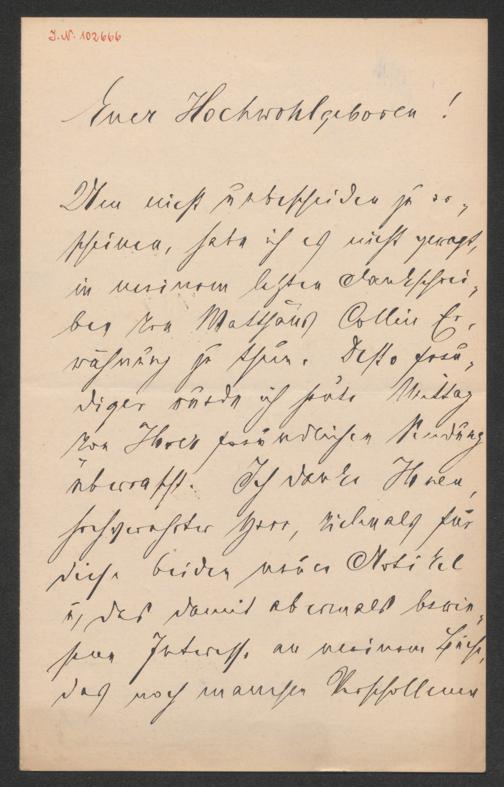 J. N. 102666
Euer Hochwohlgeboren!
Um nicht unbescheiden zu er-
scheinen, habe ich es nicht gewagt,
in meinem letzten Dankschrei-
ben von Matthäus Collin Er-
wähnung zu thun. Desto freu-
diger wurde ich heute Mittag
von Ihrer freundlichen Sendung
überrascht. Ich danke Ihnen,
hochverehrter Herr, vielmals für
diese beiden neuen Artikel
u. das damit abermals bewie-
sene Interesse an meinem Buche,
das noch manchen Verschollenen